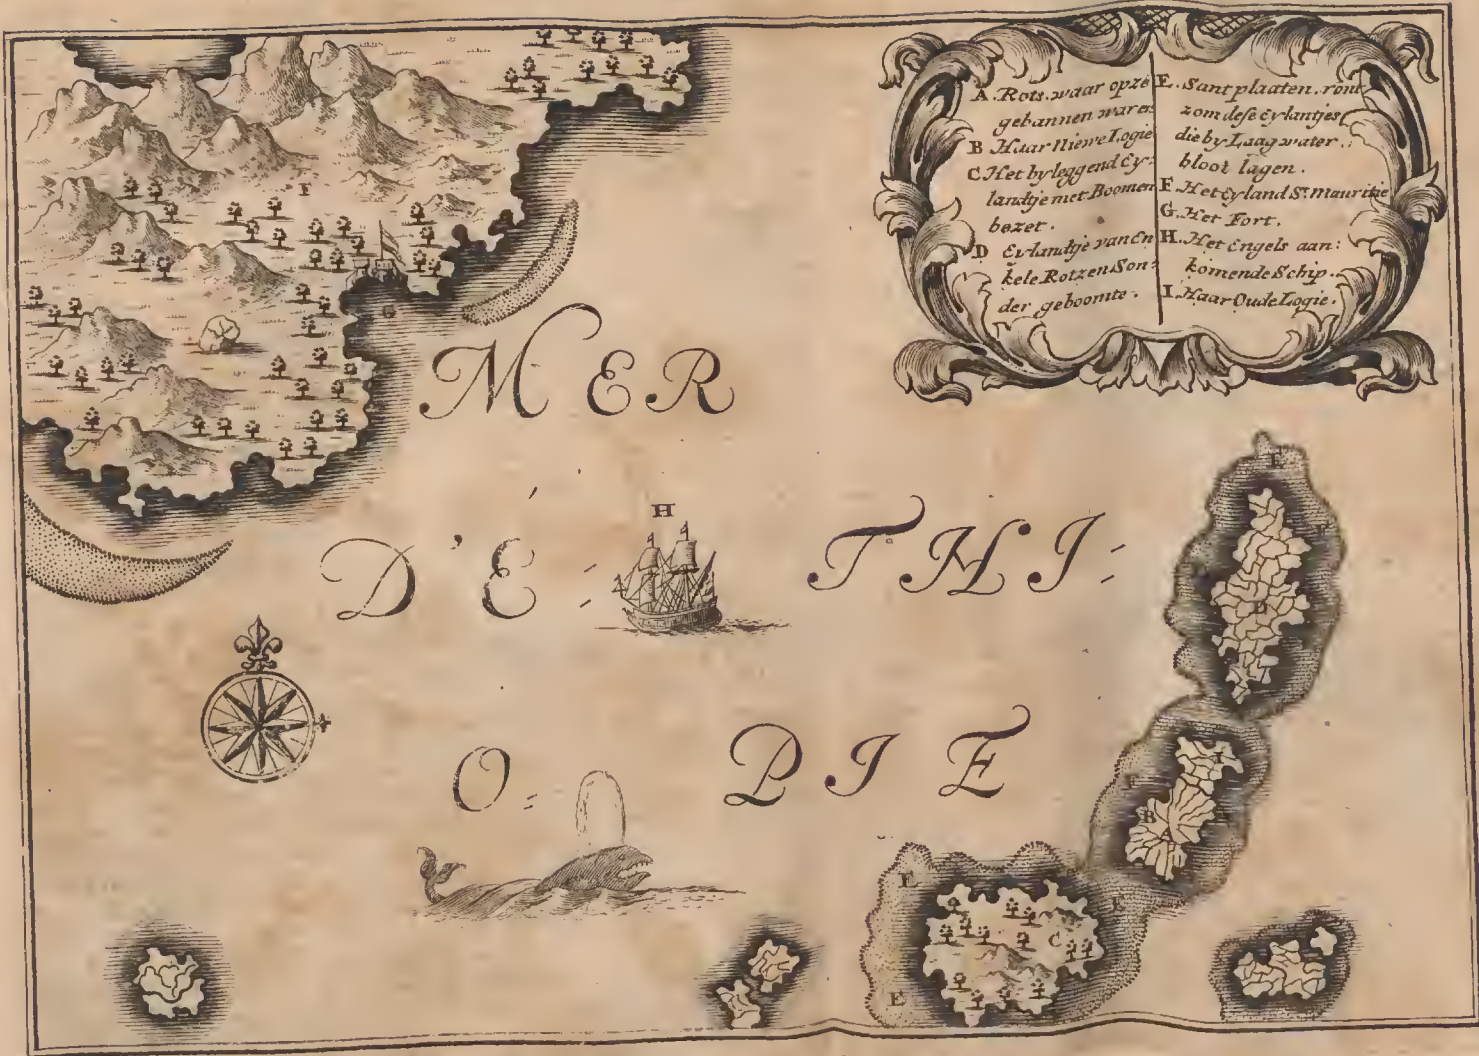 A. Rots. waar op ze
gebannen waren:
B Haar Niewe Logie
C. Het byleggend Ey:
landtje met Boomen
bezet.
D Eylandtje van En
kele Rotzen Son:
der geboomte.
E. Sant plaaten. ront
zom dese Eylantjes
die by Laag water.
bloot lagen.
F. Het Eyland St. Mauritie
G. Het Fort.
H. Het Engels aan:
komende Schip.
I. Haar Oude Logie.
F
G
MER
H
D'É- THI-
O- PIE
E
E
D
I
E
B
E
E
C
E